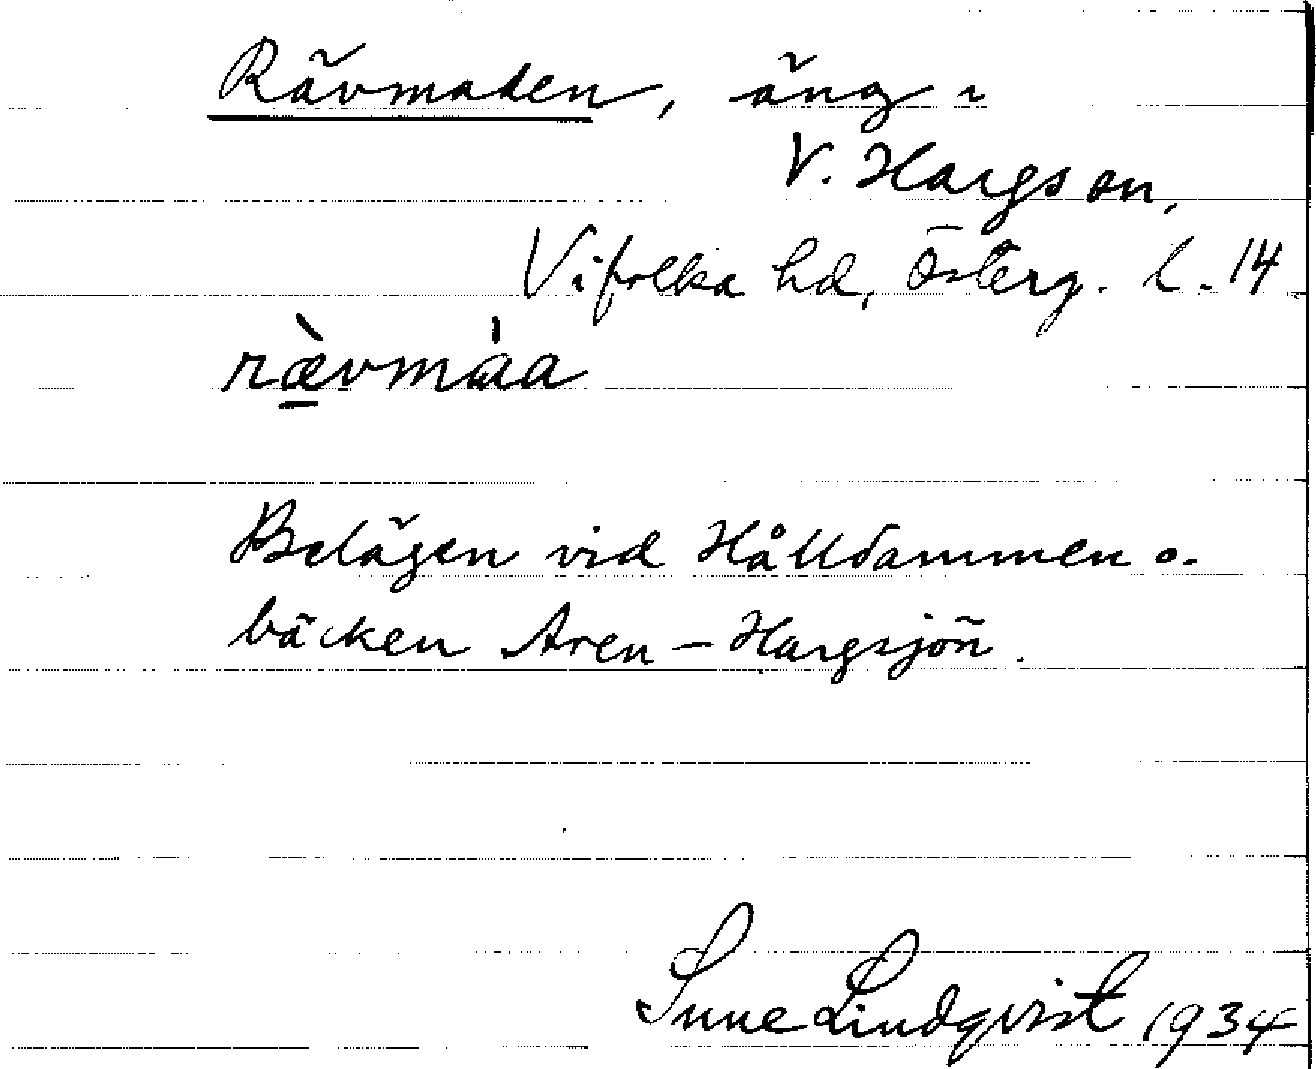 Rävmaden, äng i
V. Hargs sn,
Vifolka hd, Österg. l. 14
ræ̀vmàa
Belägen vid Hålldammen o.
bäcken Aren - Hargsjön.
Sune Lindqvist 1934